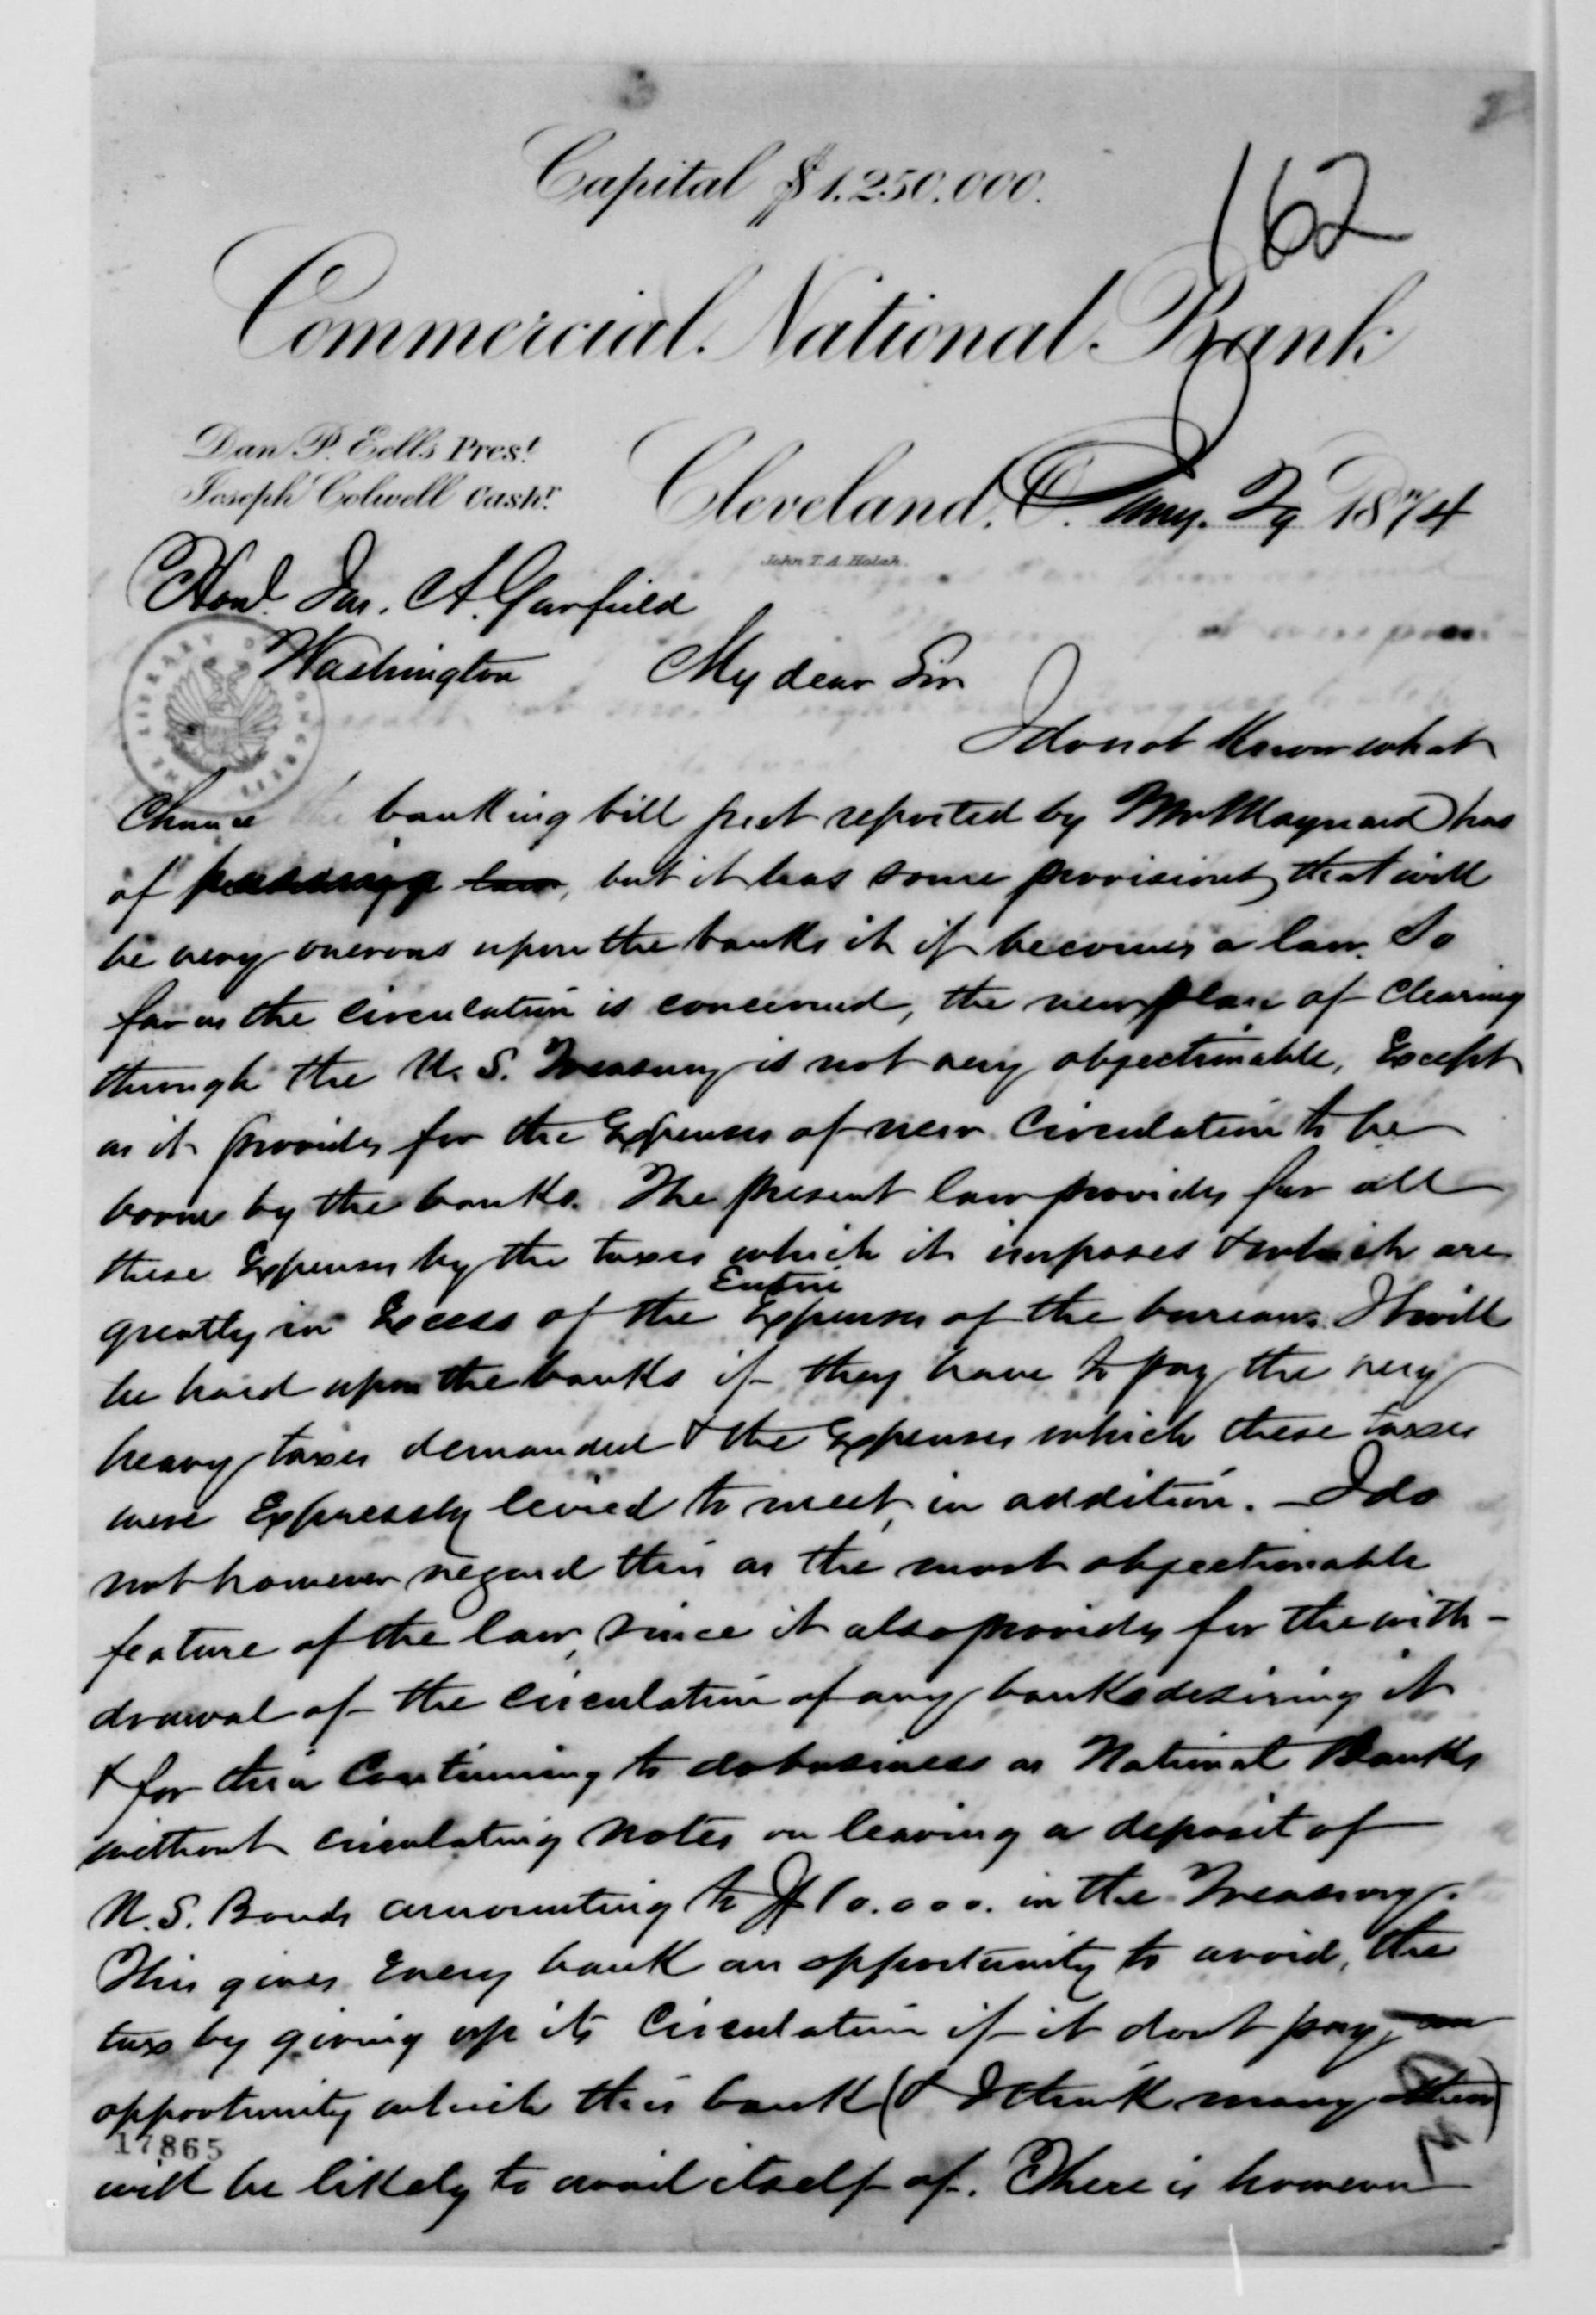 Capital $1.250.000.
162
Commercial National Bank
Dan P. Eells Pres.t
Joseph Colwell Cash.r
Cleveland, O. Jany. 29 1874
John T. A. Holah.
Honl. Jas. A. Garfield
Washington My dear Sir
I do not Know what
Chance the banking bill just reported by Mr Maynard has
of passing, but it has some provisions that will
be very onerous upon the banks it if becomes a law. So
far as the circulation is concerned, the new plan of Clearing
through the U. S. Treasury is not very objectionable, Except
as it provides for the Expenses of new Circulation to be
borne by the banks. The present law provides for all
these Expenses by the taxes which it imposes & which are
Entire
greatly in Excess of the Expenses of the bureau. It will
be hard upon the banks if they have to pay the very
heavy taxes demanded & the Expenses which these taxes
were Expressly levied to meet, in addition. – I do
not however regard this as the most objectionable
feature of the law, since it also provides for the with-
drawal of the circulation of any banks desiring it
& for their Continuing to do business as National Banks
without circulating notes on leaving a deposit of
U.S. Bonds amounting to $10.000. in the Treasury.
This gives Every bank an opportunity to avoid, the
tax by giving up its Circulation if it dont pay, an
opportunity which this bank (& I think many others)
17865
will be likely to avail itself of. There is however